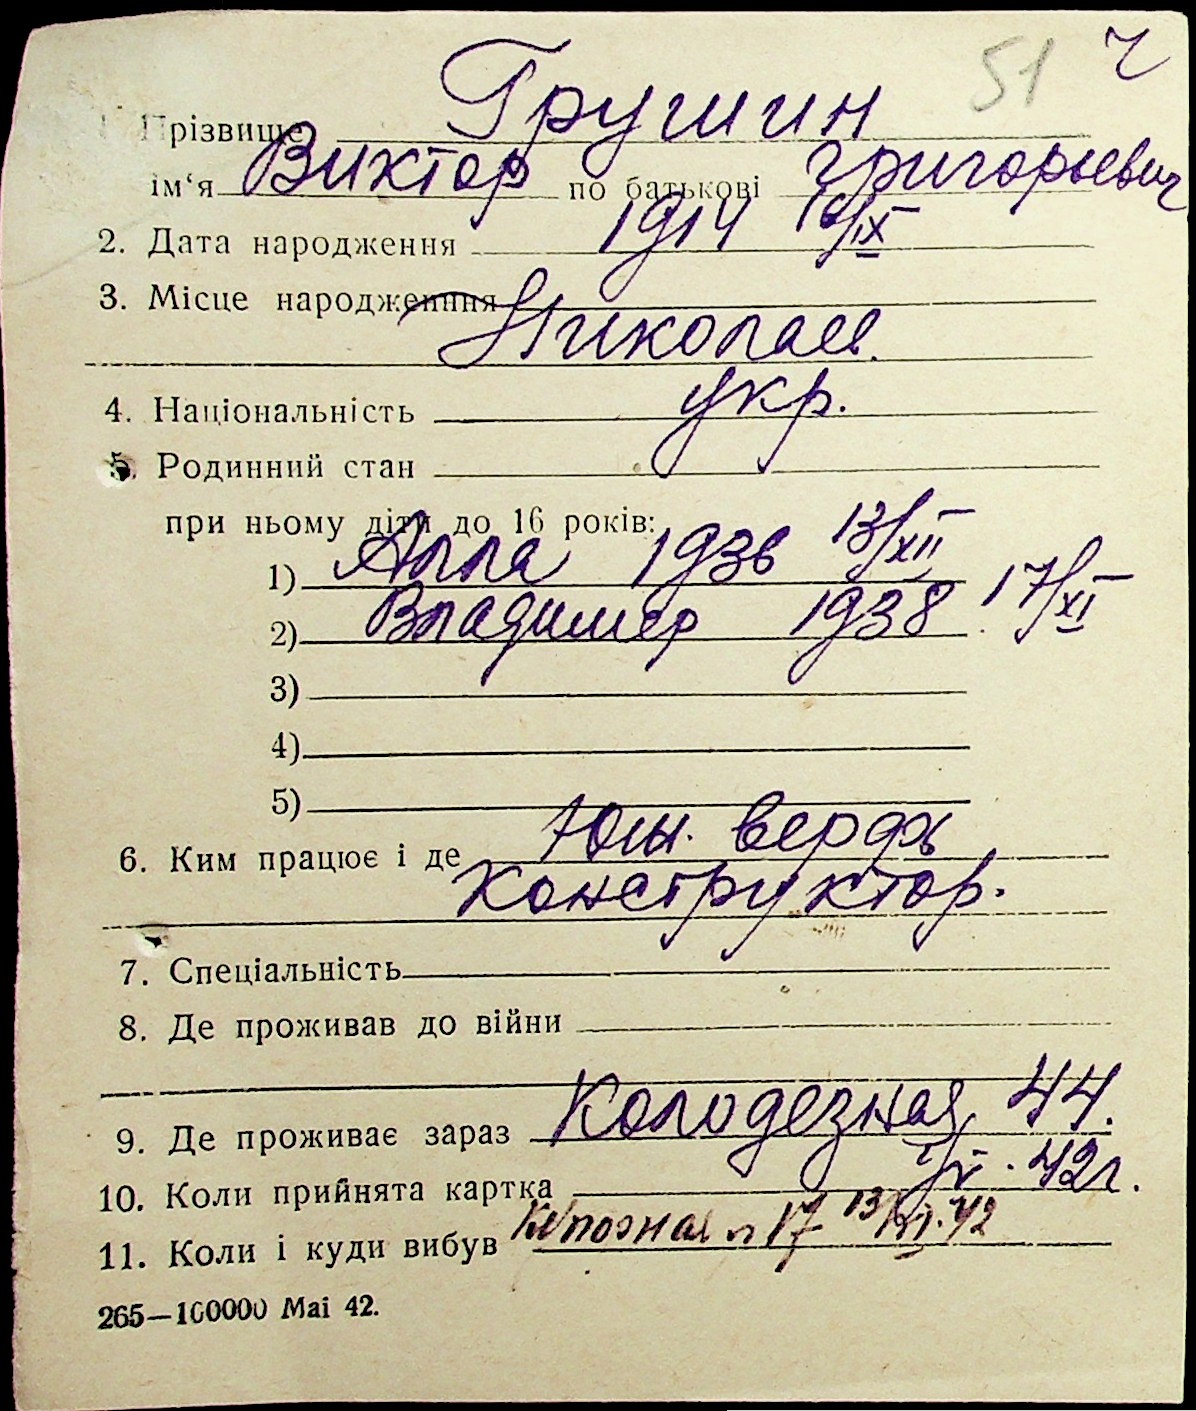 51 Ч
1. Прізвище Грушин
ім‘я Виктор по батькові Григорьевич
2. Дата народження 1914 /IX
3. Місце народженння Николаев.
4. Національність укр.
5. Родинний стан
при ньому діти до 16 років:
1) Алла 1936 13/XII
2) Владимер 1938 17/XI
3)
4)
5)
6. Ким працює і де Южн. верфь
Конструктор.
7. Спеціальність
8. Де проживав до війни
9. Де проживає зараз Колодезная 44.
10. Коли прийнята картка 42г.
11. Коли і куди вибув 17 13/ 42
265—100000 Mai 42.